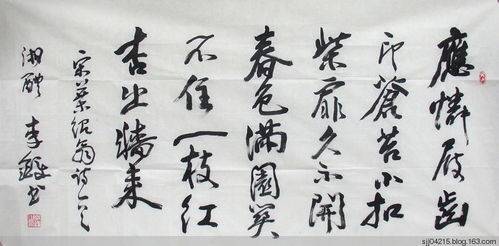 應憐屐齒
印蒼苔小扣
柴扉久不開
春色滿園關
不住一枝紅
杏出牆來
宋葉紹翁詩
湘醴 李鐸书
sjj04215.blog.163.com